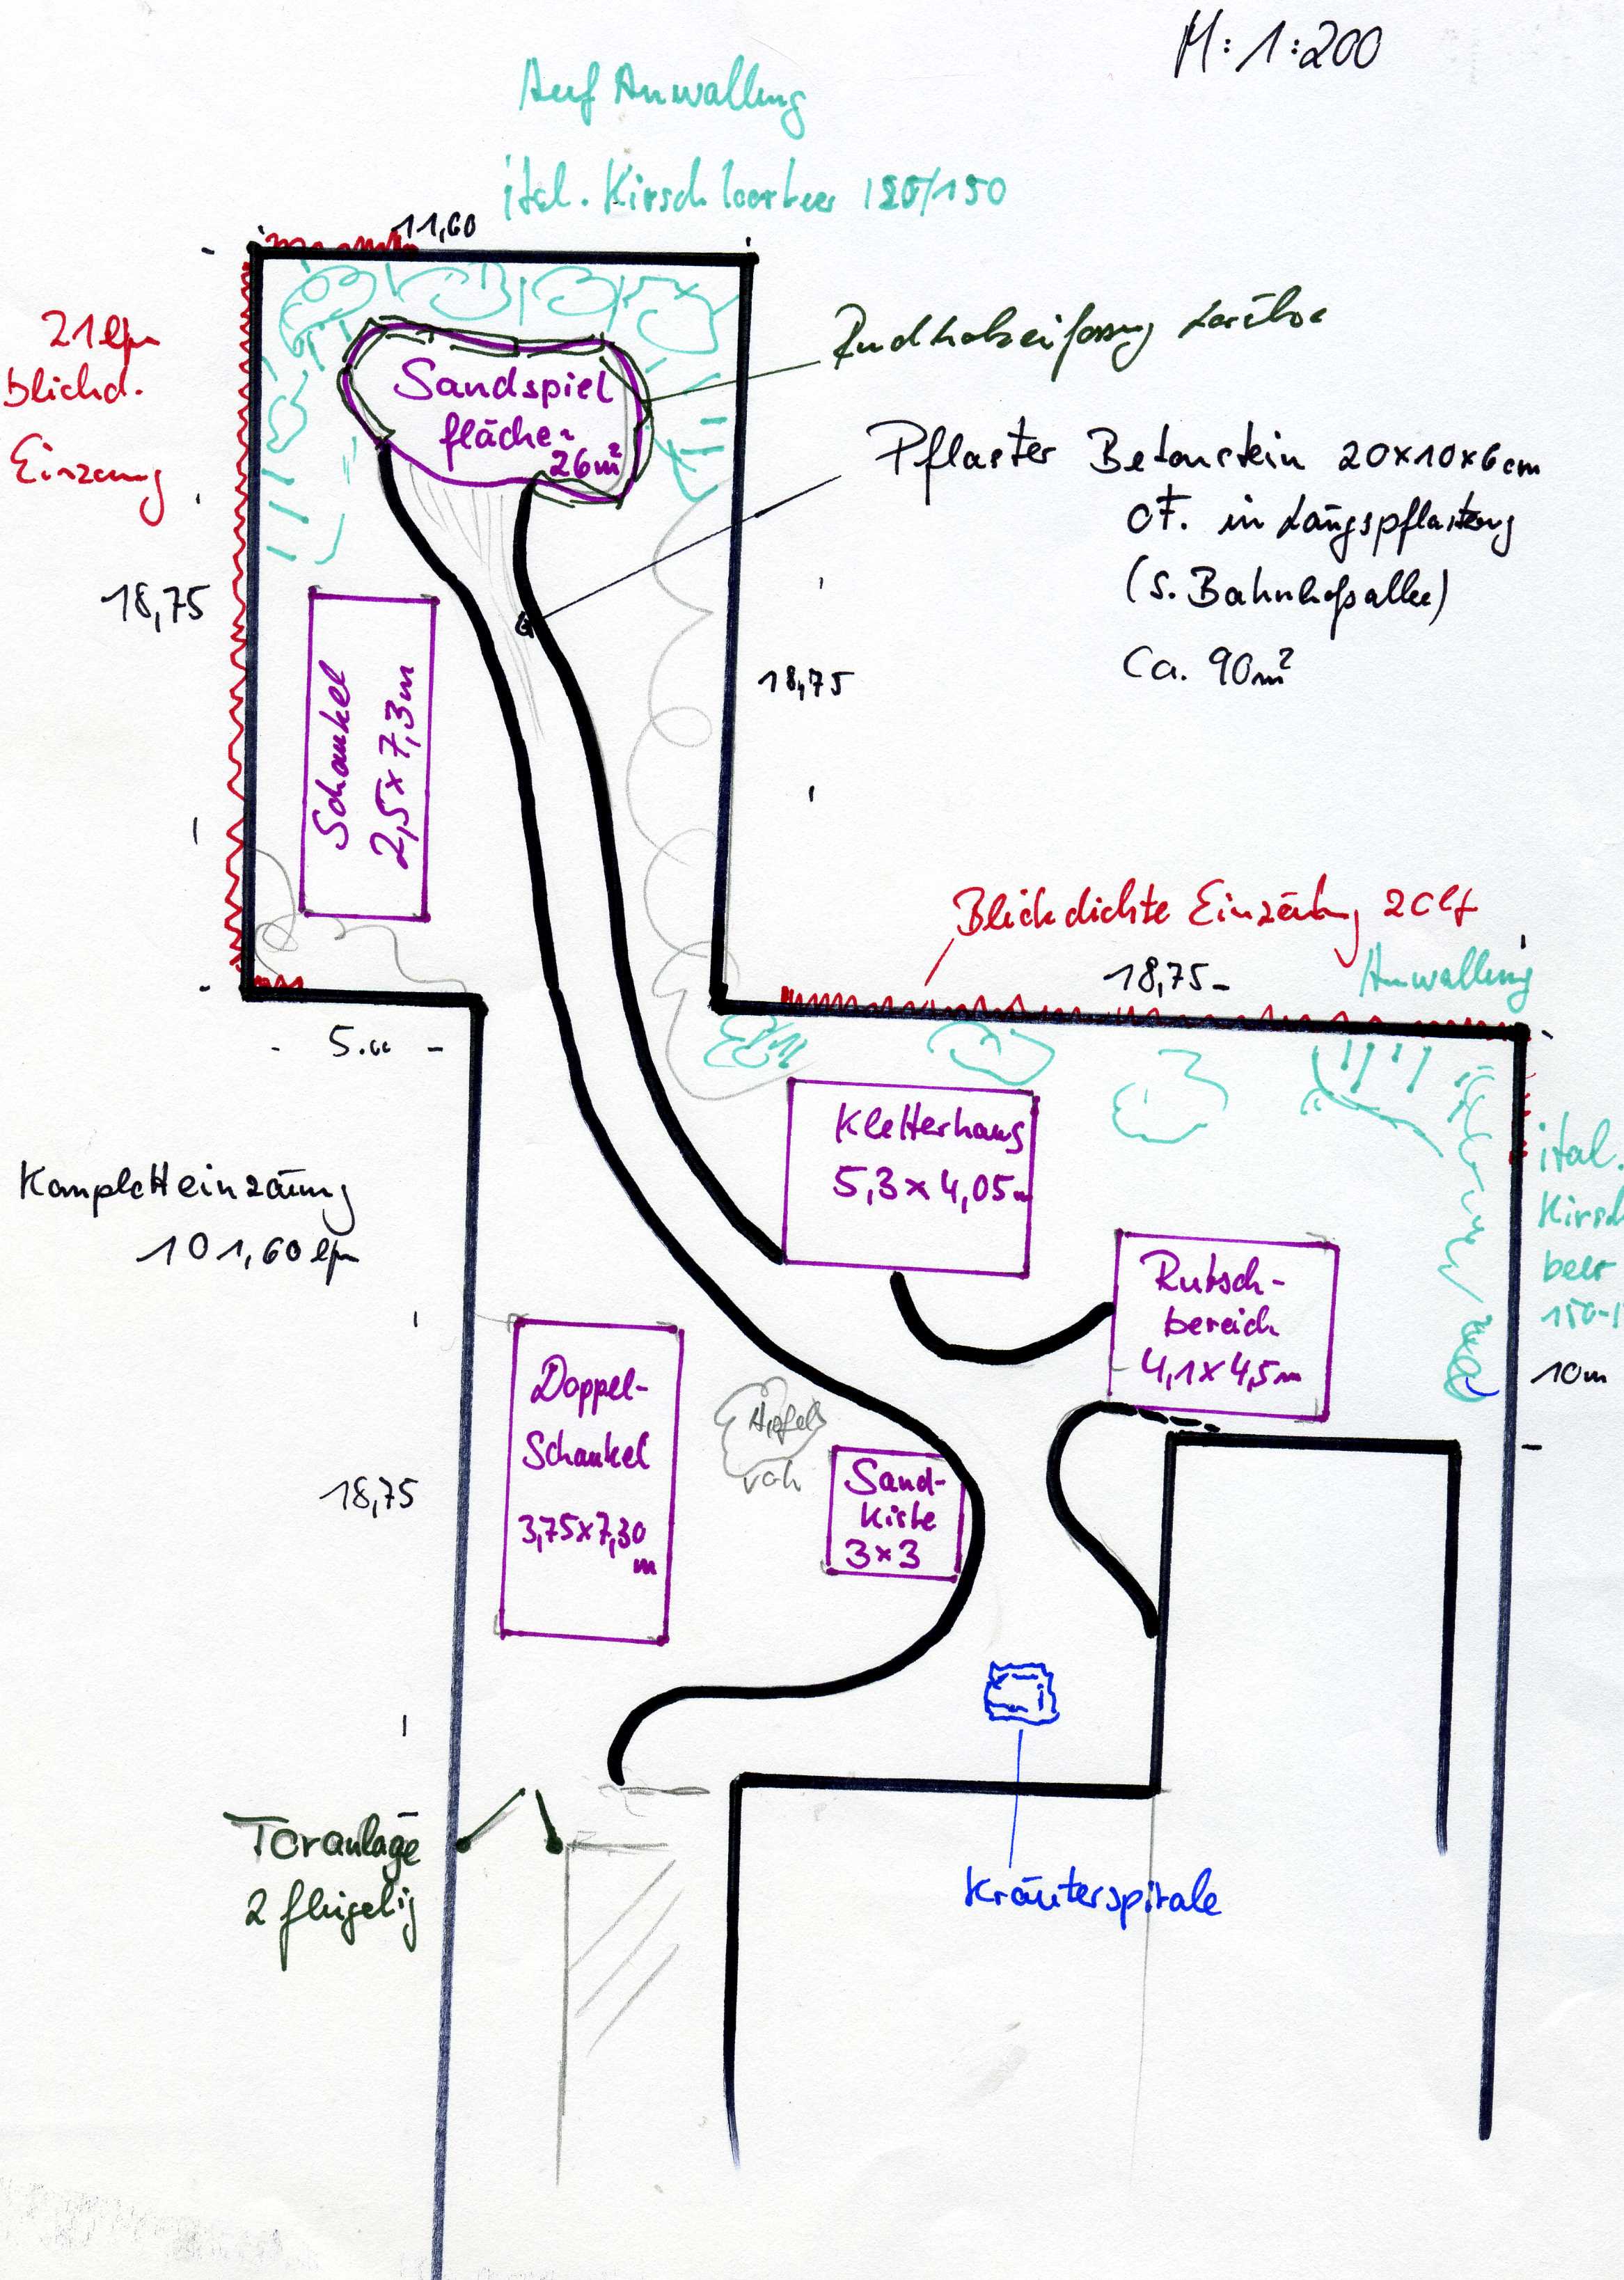 M: 1:200
Auf Anwallung
ital. Kirschloorbeer 125/150
11,60
21 lfm
blickd.
Einzäung
Rundholzeifassung
Sandspiel
fläche
26m²
Pflaster Betonstein 20x10x6cm
OF. in Längspflasterung
(s. Bahnhofsallee)
Ca. 90m²
18,75
Schaukel
2,5x7,3m
18,75
Blickdichte Einzäung 20lf
18,75
Anwallung
5.00
Kletterhaus
5,3x4,05m
Kompletteinzäung
101,60 lfm
ital.
Kirsch
beer
Rutsch-
bereich
4,1x4,5m
10m
Doppel-
Schaukel
3,75x7,30
m
Apfel
18,75
Sand-
kiste
3x3
Toranlage
2 flügelig
Kräuterspirale